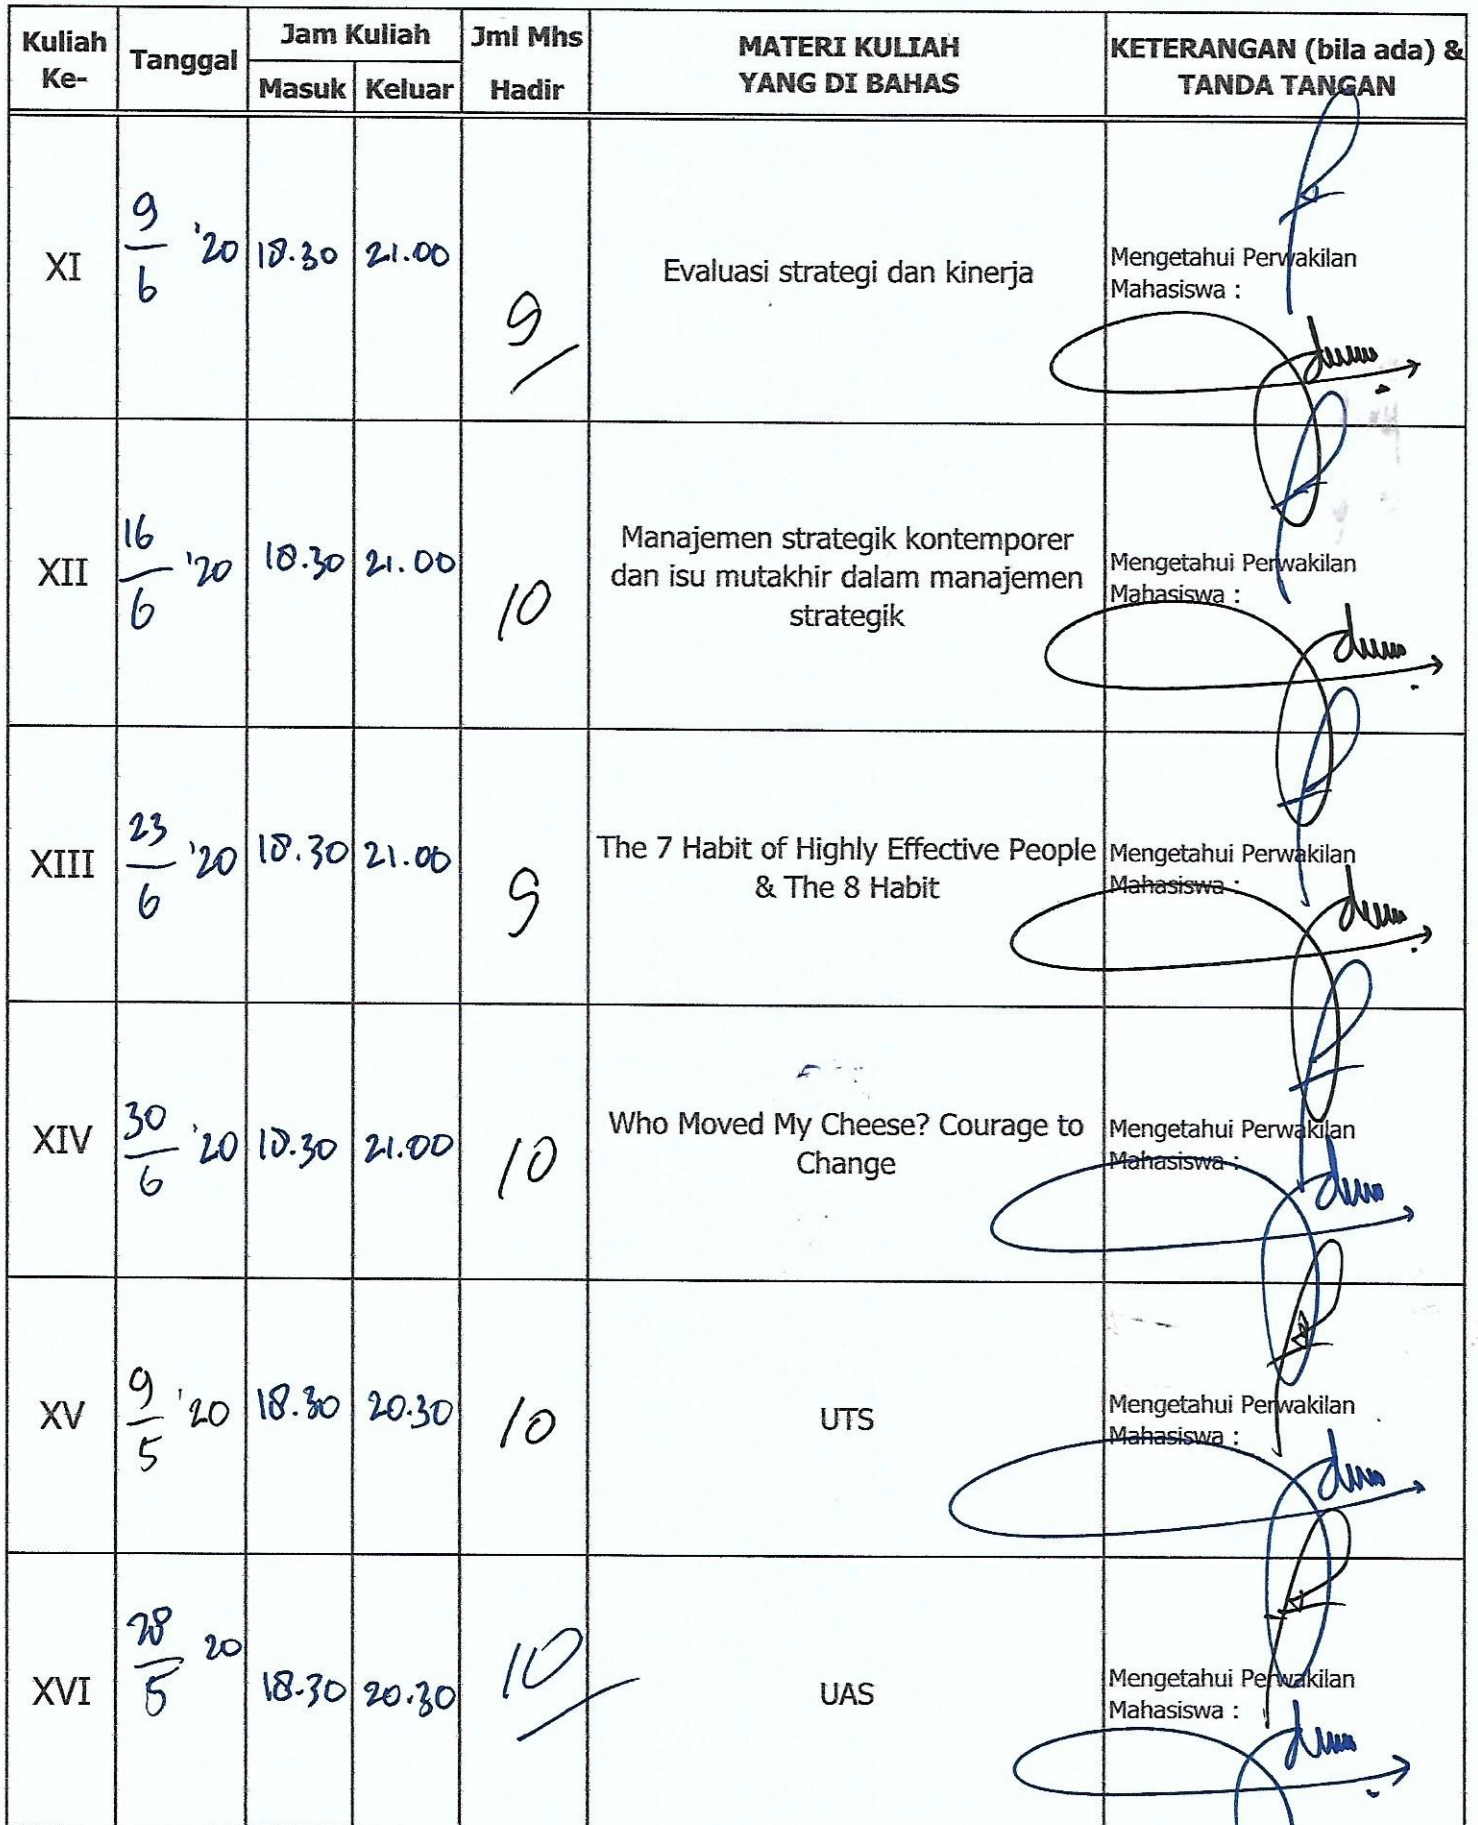 Kuliah Ke-
Tanggal
Jam Kuliah
Masuk
Keluar
Jml Mhs
Hadir
MATERI KULIAH
YANG DI BAHAS
KETERANGAN (bila ada) &
TANDA TANGAN
XI
9/6 '20
18.30
21.00
9
Evaluasi strategi dan kinerja
Mengetahui Perwakilan
Mahasiswa :
XII
16/6 '20
18.30
21.00
10
Manajemen strategik kontemporer
dan isu mutakhir dalam manajemen
strategik
Mengetahui Perwakilan
Mahasiswa :
XIII
23/6 '20
18.30
21.00
9
The 7 Habit of Highly Effective People
& The 8 Habit
Mengetahui Perwakilan
Mahasiswa :
XIV
30/6 '20
18.30
21.00
10
Who Moved My Cheese? Courage to
Change
Mengetahui Perwakilan
Mahasiswa :
XV
9/5 '20
18.30
20.30
10
UTS
Mengetahui Perwakilan
Mahasiswa :
XVI
28/5 20
18.30
20.30
10
UAS
Mengetahui Perwakilan
Mahasiswa :